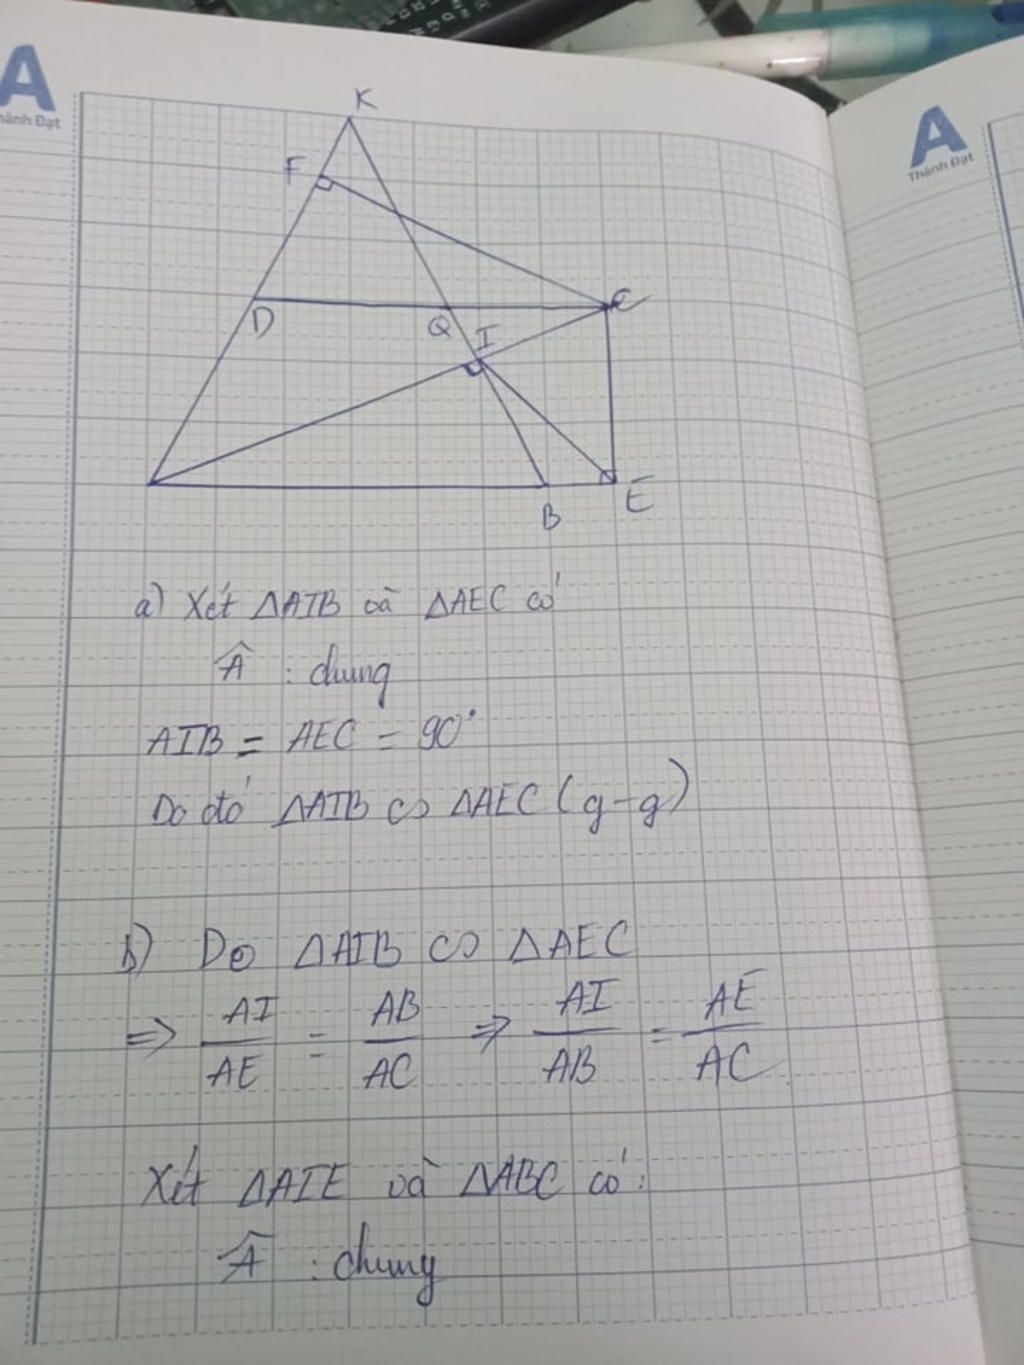 A
Thành Đạt
A
Thành Đạt
K
F
C
D
Q
I
B
E
a) Xét ΔAIB và ΔAEC có
Â : chung
AIB = AEC = 90°
Do đó ΔAIB ∽ ΔAEC (g-g)
b) Do ΔAIB ∽ ΔAEC
⇒ AI/AE = AB/AC ⇒ AI/AB = AE/AC
Xét ΔAIE và ΔABC có:
Â : chung